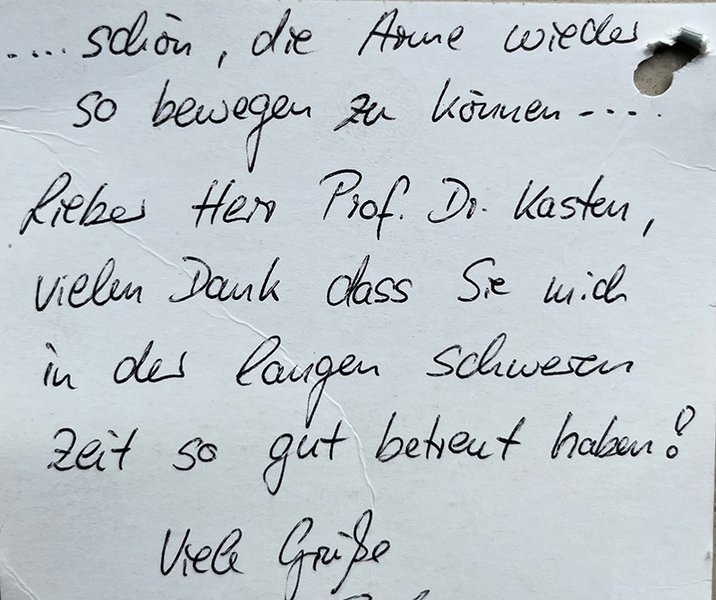 .... schön, die Arme wieder
so bewegen zu können ....
Lieber Herr Prof. Dr. Kasten,
vielen Dank dass Sie mich
in der langen schweren
Zeit so gut betreut haben!
Viele Grüße